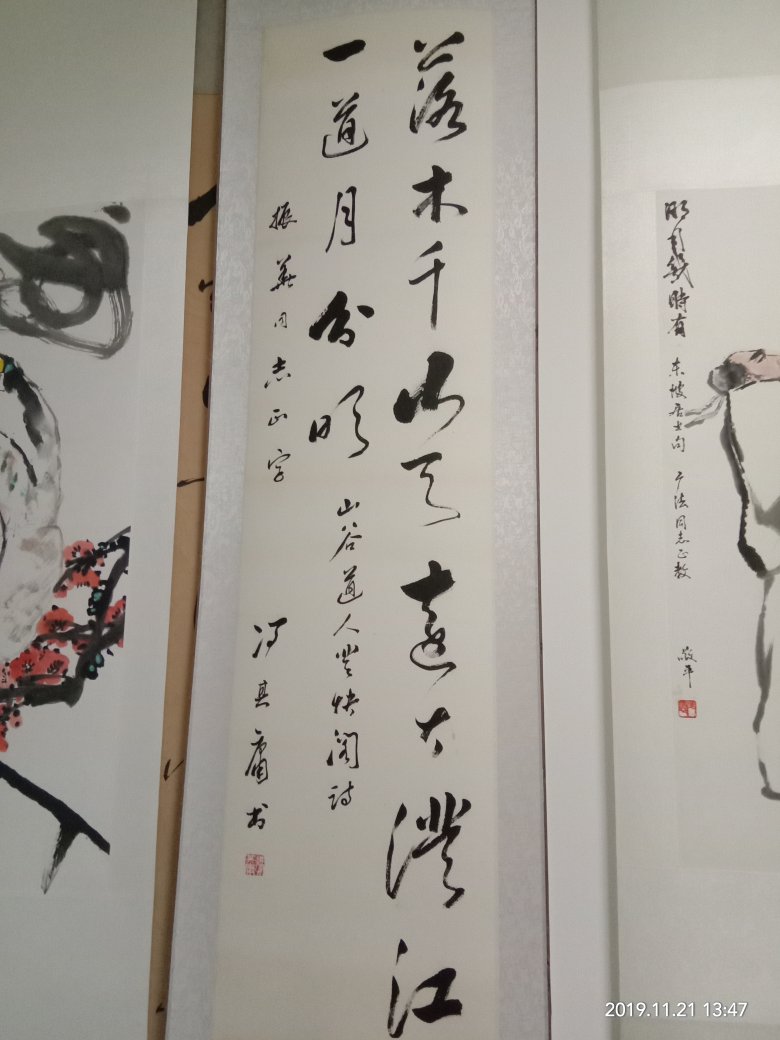 落木千山天远大澄江
一道月分明
山谷道人登快阁诗
振华同志正字
冯其庸书
明月几时有
东坡居士句
广法同志正教
敬平
2019.11.21 13:47